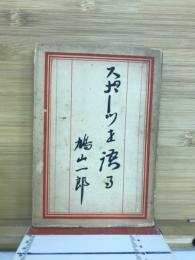 スポーツを語る
鳩山一郎